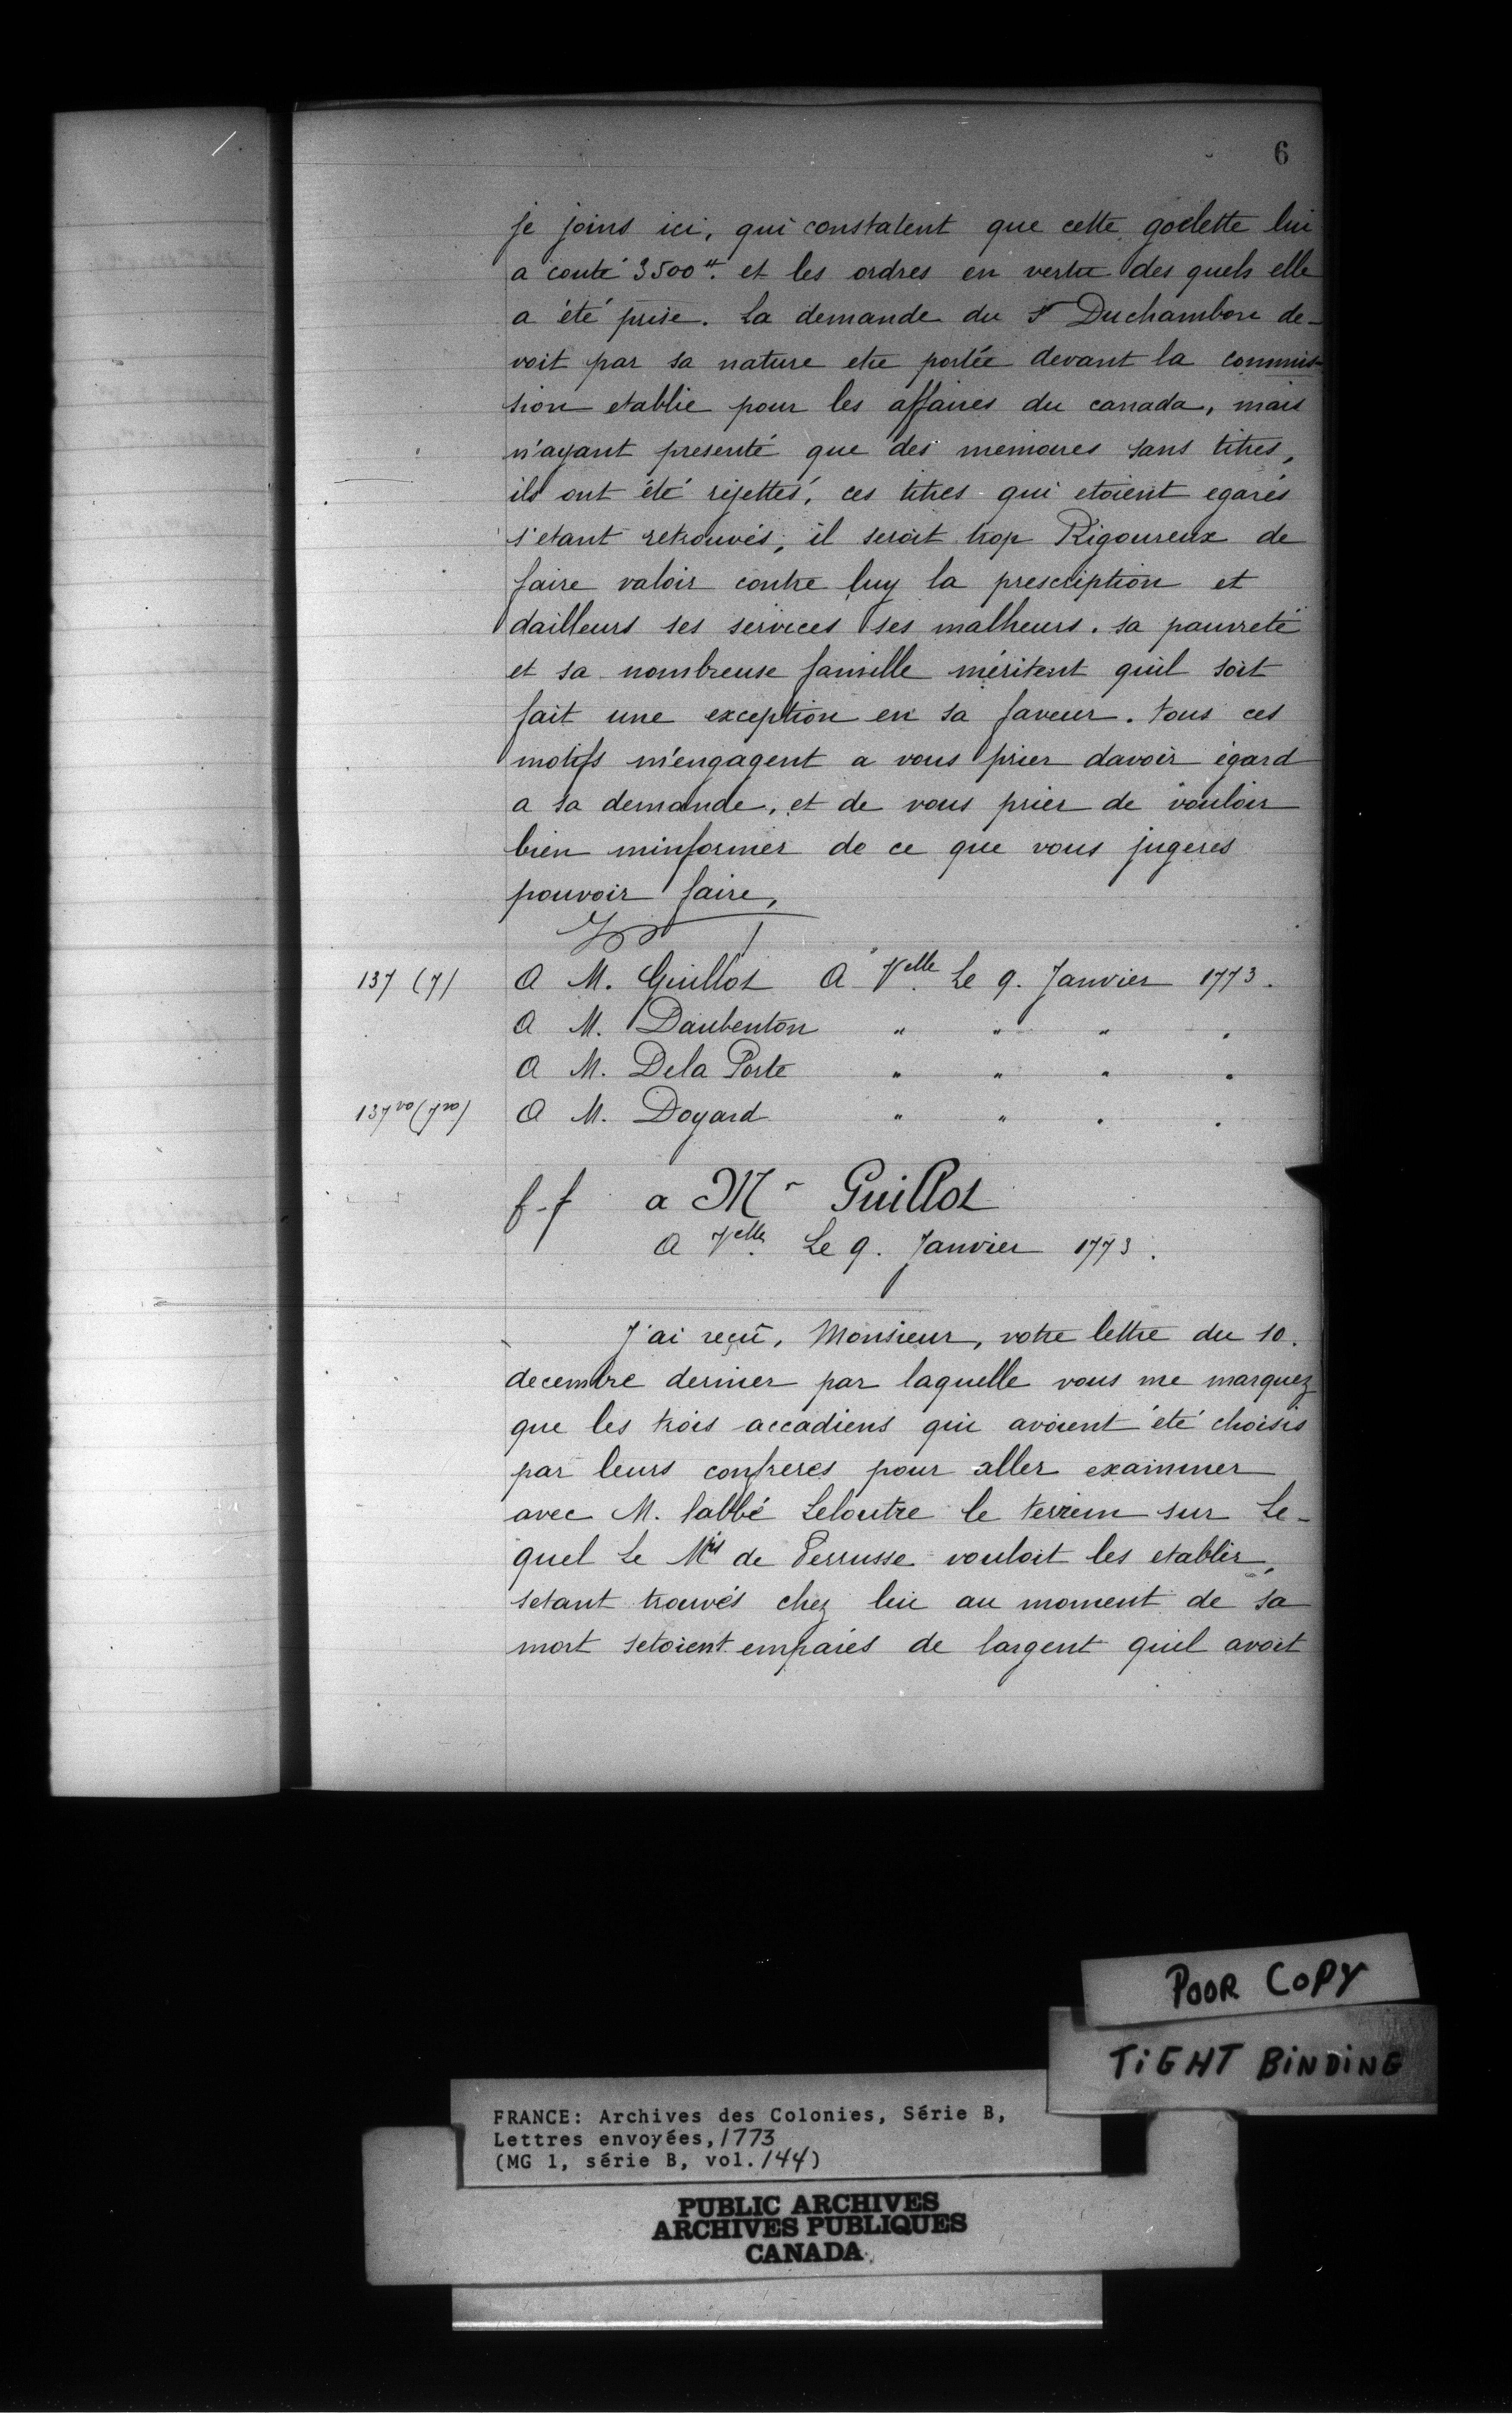 6
je joins ici, qui constatent que cette goelette lui
a couté 3500#. et les ordres en vertu des quels elle
a été prise. La demande du Sr Duchambon de-
voit par sa nature etre portée devant la commis-
sion etablie pour les affaires du canada, mais
n'ayant presenté que des memoires sans titres,
ils ont été rejettés, ces titres qui etoient egarés
s'etant retrouvés, il seroit trop Rigoureux de
faire valoir contre luy la prescription et
dailleurs ses services ses malheurs. sa pauvreté
et sa nombreuse famille méritent quil soit
fait une exception en sa faveur. tous ces
motifs m'engagent a vous prier davoir égard
a sa demande, et de vous prier de vouloir
bien minformer de ce que vous jugeres
pouvoir faire,
137 (7) A M. Guillot A Velle Le 9. Janvier 1773.
A M. Daubenton " " " .
A M. Dela Porte " " " .
137 vo (7 vo) A M. Doyard " " " .
f-f a Mr Guillot
A Velle. Le 9. Janvier 1773.
J'ai reçû, Monsieur, votre lettre du 10.
decembre dernier par laquelle vous me marquez
que les trois accadiens qui avoient été choisis
par leurs confreres pour aller examiner
avec M. labbé Leloutre le terrein sur Le-
quel Le Mis de Perusse vouloit les etablir,
setant trouvés chez lui au moment de sa
mort setoient emparés de largent quil avoit
POOR COPY
TIGHT BINDING
FRANCE: Archives des Colonies, Série B,
Lettres envoyées, 1773
(MG 1, série B, vol. 144)
PUBLIC ARCHIVES
ARCHIVES PUBLIQUES
CANADA